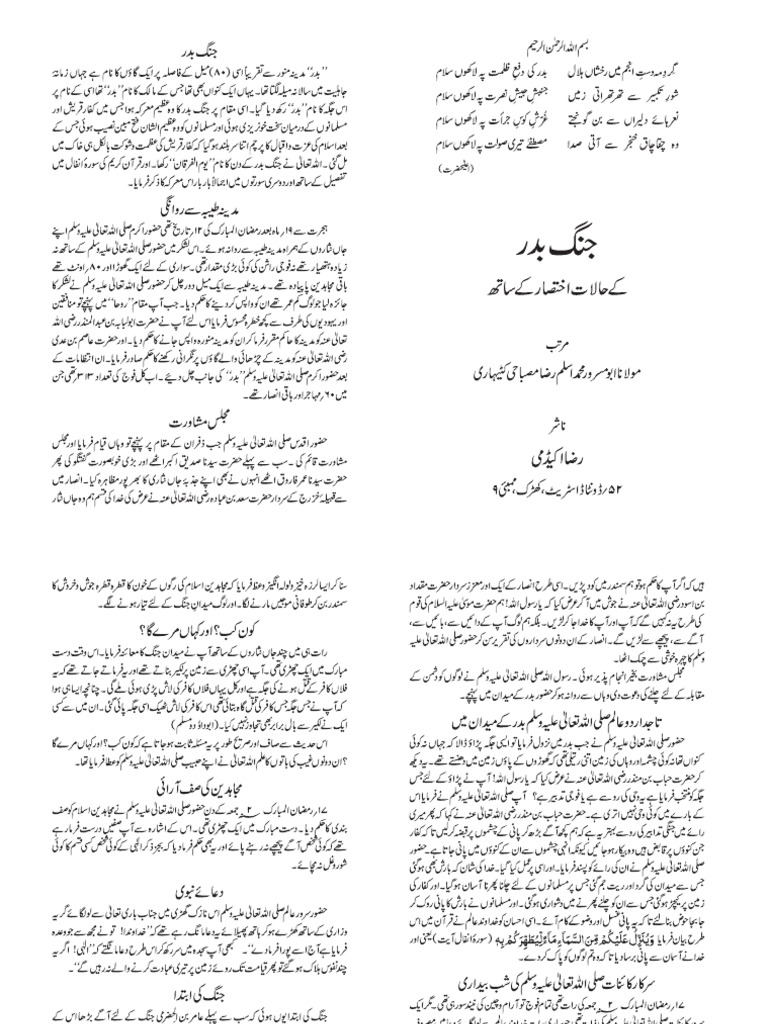 بسم اللہ الرحمٰن الرحیم
گردِ مہ دستِ انجم میں رخشاں ہلال بدر کی دفعِ ظلمت پہ لاکھوں سلام
شورِ تکبیر سے تھرتھراتی زمیں جنبشِ جیشِ نصرت پہ لاکھوں سلام
نعرہائے دلیراں سے بن گونجتے غرشِ کوسِ جرأت پہ لاکھوں سلام
وہ چقاچاق خنجر سے آتی صدا مصطفےٰ تیری صولت پہ لاکھوں سلام
جنگ بدر
کے حالات اختصار کے ساتھ
مرتب
مولانا ابو مسرور محمد اسلم رضا مصباحی کٹیہاری
ناشر
رضا اکیڈمی
۵۲/ڈونٹاڈ اسٹریٹ، کھڑک، ممبئی ۹
جنگ بدر
’’بدر‘‘ مدینہ منورہ سے تقریباً اسی (۸۰) میل کے فاصلہ پر ایک گاؤں کا نام ہے جہاں زمانۂ
جاہلیت میں سالانہ میلہ لگتا تھا۔ یہاں ایک کنواں بھی تھا جس کے مالک کا نام ’’بدر‘‘ تھا اسی کے نام پر
اس جگہ کا نام ’’بدر‘‘ رکھ دیا گیا۔ اسی مقام پر جنگ بدر کا وہ عظیم معرکہ ہوا جس میں کفار قریش اور
مسلمانوں کے درمیان سخت خونریزی ہوئی اور مسلمانوں کو وہ عظیم الشان فتح مبین نصیب ہوئی جس کے
بعد اسلام کی عزت و اقبال کا پرچم اتنا سر بلند ہو گیا کہ کفار قریش کی عظمت و شوکت بالکل ہی خاک میں
مل گئی۔ اللہ تعالیٰ نے جنگ بدر کے دن کا نام ’’یوم الفرقان‘‘ رکھا۔ اور قرآن کریم کی سورۂ انفال میں
تفصیل کے ساتھ اور دوسری سورتوں میں اجمالاً بار بار اس معرکہ کا ذکر فرمایا۔
مدینہ طیبہ سے روانگی
ہجرت سے ۱۹/ماہ بعد رمضان المبارک کی ۱۲/تاریخ تھی حضور اکرم صلی اللہ تعالیٰ علیہ وسلم اپنے
جاں نثاروں کے ہمراہ مدینہ طیبہ سے روانہ ہوئے۔ اس لشکر میں حضور صلی اللہ تعالیٰ علیہ وسلم کے ساتھ نہ
زیادہ ہتھیار تھے نہ فوجی راشن کی کوئی بڑی مقدار تھی۔ سواری کے لئے ایک گھوڑا اور ۸۰/اونٹ تھے
باقی مجاہدین پا پیادہ تھے۔ مدینہ طیبہ سے ایک میل دور چل کر حضور صلی اللہ تعالیٰ علیہ وسلم نے لشکر کا
جائزہ لیا جو لوگ کم عمر تھے ان کو واپس کر دینے کا حکم دیا۔ جب آپ مقام ’’روحا‘‘ میں پہنچے تو منافقین
اور یہودیوں کی طرف سے کچھ خطرہ محسوس فرمایا اس لئے آپ نے حضرت ابولبابہ بن عبدالمنذر رضی اللہ
تعالیٰ عنہ کو مدینہ کا حاکم مقرر فرما کر ان کو مدینہ منورہ واپس جانے کا حکم دیا۔ اور حضرت عاصم بن عدی
رضی اللہ تعالیٰ عنہ کو مدینہ کے چڑھائی والے گاؤں پر نگرانی رکھنے کا حکم صادر فرمایا۔ ان انتظامات کے
بعد حضور اکرم صلی اللہ تعالیٰ علیہ وسلم ’’بدر‘‘ کی جانب چل دیئے۔ اب کل فوج کی تعداد ۳۱۳ تھی جن
میں ۶۰/مہاجر اور باقی انصار تھے۔
مجلس مشاورت
حضور اقدس صلی اللہ تعالیٰ علیہ وسلم جب ذفران کے مقام پر پہنچے تو وہاں قیام فرمایا اور مجلس
مشاورت قائم کی۔ سب سے پہلے حضرت سیدنا صدیق اکبر اٹھے اور بڑی خوبصورت گفتگو کی پھر
حضرت سیدنا عمر فاروق اٹھے انہوں نے بھی اپنے جذبۂ جاں نثاری کا بھر پور مظاہرہ کیا۔ انصار میں
سے قبیلۂ خزرج کے سردار حضرت سعد بن عبادہ رضی اللہ تعالیٰ عنہ نے عرض کی خدا کی قسم ہم وہ جاں نثار
ہیں کہ اگر آپ کا حکم ہو تو ہم سمندر میں کود پڑیں۔ اسی طرح انصار کے ایک اور معزز سردار حضرت مقداد
بن اسود رضی اللہ تعالیٰ عنہ نے جوش میں آ کر عرض کیا کہ یا رسول اللہ! ہم حضرت موسیٰ علیہ السلام کی قوم
کی طرح یہ نہ کہیں گے کہ آپ اور آپ کا خدا جا کر لڑیں۔ بلکہ ہم لوگ آپ کے دائیں سے، بائیں سے،
آگے سے، پیچھے سے لڑیں گے۔ انصار کے ان دونوں سرداروں کی تقریر سن کر حضور صلی اللہ تعالیٰ علیہ
وسلم کا چہرہ خوشی سے چمک اٹھا۔
مجلس مشاورت بخیر انجام پذیر ہوئی۔ رسول اللہ صلی اللہ تعالیٰ علیہ وسلم نے لوگوں کو دشمن کے
مقابلہ کے لئے چلنے کی دعوت دی وہاں سے روانہ ہو کر حضور بدر کے میدان میں پہنچے۔
تاجدار دو عالم صلی اللہ تعالیٰ علیہ وسلم بدر کے میدان میں
حضور صلی اللہ تعالیٰ علیہ وسلم نے جب بدر میں نزول فرمایا تو ایسی جگہ پڑاؤ ڈالا کہ جہاں نہ کوئی
کنواں تھا نہ کوئی چشمہ اور وہاں کی زمین اتنی ریتلی تھی کہ گھوڑوں کے پاؤں زمین میں دھنستے تھے۔ یہ دیکھ
کر حضرت حباب بن منذر رضی اللہ تعالیٰ عنہ نے عرض کیا کہ یا رسول اللہ! آپ نے پڑاؤ کے لئے جس
جگہ کو منتخب فرمایا ہے یہ وحی کی رو سے ہے یا فوجی تدبیر ہے؟ آپ صلی اللہ تعالیٰ علیہ وسلم نے فرمایا اس
کے بارے میں کوئی وحی نہیں اتری ہے۔ حضرت حباب بن منذر رضی اللہ تعالیٰ عنہ نے کہا کہ پھر میری
رائے میں جنگی تدابیر کی رو سے بہتر یہ ہے کہ ہم کچھ آگے بڑھ کر پانی کے چشموں پر قبضہ کر لیں تا کہ کفار
جن کنوؤں پر قابض ہیں وہ بیکار ہو جائیں کیونکہ انہی چشموں سے ان کے کنوؤں میں پانی جاتا ہے۔ حضور
صلی اللہ تعالیٰ علیہ وسلم نے ان کی رائے کو پسند فرمایا۔ اور اسی پر عمل کیا گیا۔ خدا کی شان کہ بارش بھی ہو گئی
جس سے میدان کی گرد اور ریت جم گئی جس پر مسلمانوں کے لئے چلنا پھرنا آسان ہو گیا۔ اور کفار کی
زمین پر کیچڑ ہو گئی جس سے ان کو چلنے پھرنے میں دشواری ہو گئی۔ اور مسلمانوں نے بارش کا پانی روک کر
جا بجا حوض بنا لئے تا کہ یہ پانی غسل اور وضو کے کام آئے۔ اسی احسان کو خداوند عالم نے قرآن میں اس
طرح بیان فرمایا وَیُنَزِّلُ عَلَیْکُمْ مِّنَ السَّمَآءِ مَآءً لِّیُطَهِّرَکُمْ بِهٖ (سورۂ انفال آیت) یعنی اور
خدا نے آسمان سے پانی برسا دیا تا کہ وہ تم لوگوں کو پاک کر دے۔
سرکار کائنات صلی اللہ تعالیٰ علیہ وسلم کی شب بیداری
۱۷/رمضان المبارک ۲ھ جمعہ کی رات تھی تمام فوج تو آرام و چین کی نیند سو رہی تھی۔ مگر ایک
سنا کر ایسا لرزہ خیز ولولہ انگیز وعظ فرمایا کہ مجاہدین اسلام کی رگوں کے خون کا قطرہ قطرہ جوش و خروش کا
سمندر بن کر طوفانی موجیں مارنے لگا۔ اور لوگ میدان جنگ کے لئے تیار ہونے لگے۔
کون کب؟ اور کہاں مرے گا؟
رات ہی میں چند جاں نثاروں کے ساتھ آپ نے میدان جنگ کا معائنہ فرمایا۔ اس وقت دست
مبارک میں ایک چھڑی تھی۔ آپ اسی چھڑی سے زمین پر لکیر بناتے تھے اور یہ فرماتے جاتے تھے کہ یہ
فلاں کافر کے قتل ہونے کی جگہ ہے اور کل یہاں فلاں کافر کی لاش پڑی ہوئی ملے گی۔ چنانچہ ایسا ہی ہوا
کہ آپ نے جس جگہ جس کافر کی قتل گاہ بتائی تھی اس کافر کی لاش ٹھیک اسی جگہ پائی گئی۔ ان میں سے کسی
ایک نے لکیر سے بال برابر بھی تجاوز نہیں کیا۔ (ابوداؤد و مسلم)
اس حدیث سے صاف اور صریح طور پر یہ مسئلہ ثابت ہو جاتا ہے کہ کون کب؟ اور کہاں مرے گا
؟ ان دونوں غیب کی باتوں کا علم اللہ تعالیٰ نے اپنے حبیب صلی اللہ تعالیٰ علیہ وسلم کو عطا فرمایا تھا۔
مجاہدین کی صف آرائی
۱۷/رمضان المبارک ۲ھ جمعہ کے دن حضور صلی اللہ تعالیٰ علیہ وسلم نے مجاہدین اسلام کو صف
بندی کا حکم دیا۔ دست مبارک میں ایک چھڑی تھی۔ اس کے اشارہ سے آپ صفیں درست فرما رہے
تھے کہ کوئی شخص آگے پیچھے نہ رہنے پائے اور یہ بھی حکم فرما دیا کہ بجز ذکر الٰہی کے کوئی شخص کسی قسم کا کوئی
شور و غل نہ مچائے۔
دعائے نبوی
حضور سرور عالم صلی اللہ تعالیٰ علیہ وسلم اس نازک گھڑی میں جناب باری تعالیٰ سے لو لگائے گریہ
وزاری کے ساتھ کھڑے ہو کر ہاتھ پھیلائے یہ دعا مانگ رہے تھے کہ ’’خداوندا! تو نے مجھ سے جو وعدہ
فرمایا ہے آج اسے پورا فرما دے‘‘۔ کبھی آپ سجدہ میں سر رکھ کر اس طرح دعا مانگتے کہ ’’الٰہی! اگر یہ
چند نفوس ہلاک ہو گئے تو پھر قیامت تک روئے زمین پر تیری عبادت کرنے والے نہ رہیں گے‘‘۔
جنگ کی ابتدا
جنگ کی ابتدا یوں ہوئی کہ سب سے پہلے عامر بن الحضرمی جنگ کے لئے آگے بڑھا اس کے